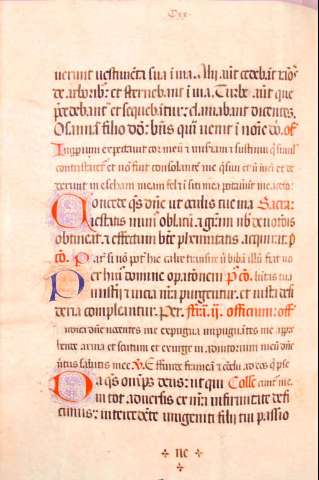 uerunt uestimēta sua ī uia. Alii aūt cedebāt
de arborib; et sternebant ī uia. Turbe aūt que
p̄cedebant et sequebātur: clamabant dicentes.
Osanna filio dd: bn̄s qui uenit ī noīe dn̄i. of
Inproperium expectauit cor meū ⁊ miseriam ⁊ sustinui
contristaret et nō fuit consolantē me q̄siui et nō īueni et de
derunt in escham meam fel ⁊ ī siti mea potauer̄t me aceto.
Concede q̄s dn̄e ut oculis tue ma Secreta
iestatis munus oblatū ⁊ grām nb̄ deuotōis
obtineat ⁊ effectum bt̄e p̄hennitatis acquirat. p
co. Pater si nō pot hic calix transire nisi bibā illū fiat uo
Per huī domine opationem p̄ co. lūtas tua
misterii ⁊ uicia nr̄a purgentur. et iusta desi
deria compleantur. Per. feria ij. officium: off
iudica dn̄e nocentes me expugna impugnātes me. apre
hende arma et scutum et exurge in adiutorium meū dn̄e
uirtus salutis mee. V. Effunde frameā ⁊ cōclude aduersus eos q̄ perse
Da q̄s om̄ps deus: ut qui Colle cuntur me.
in tot aduersis ex nr̄a infirmitate defi
cimus: intercedēte unigeniti filii tui passio
ne